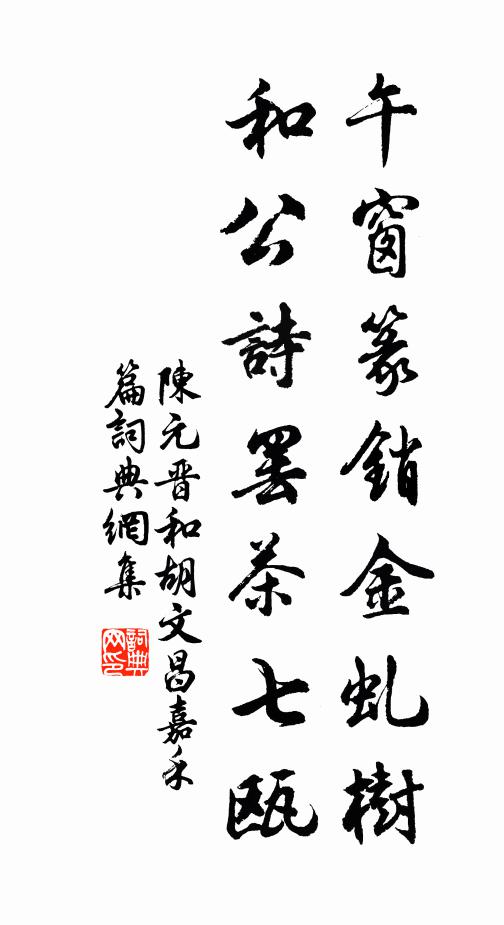 午窗篆銷金虬樹
和公詩罷茶七甌
陳元晋和胡文昌嘉禾
篇詞典網集
詞典网印